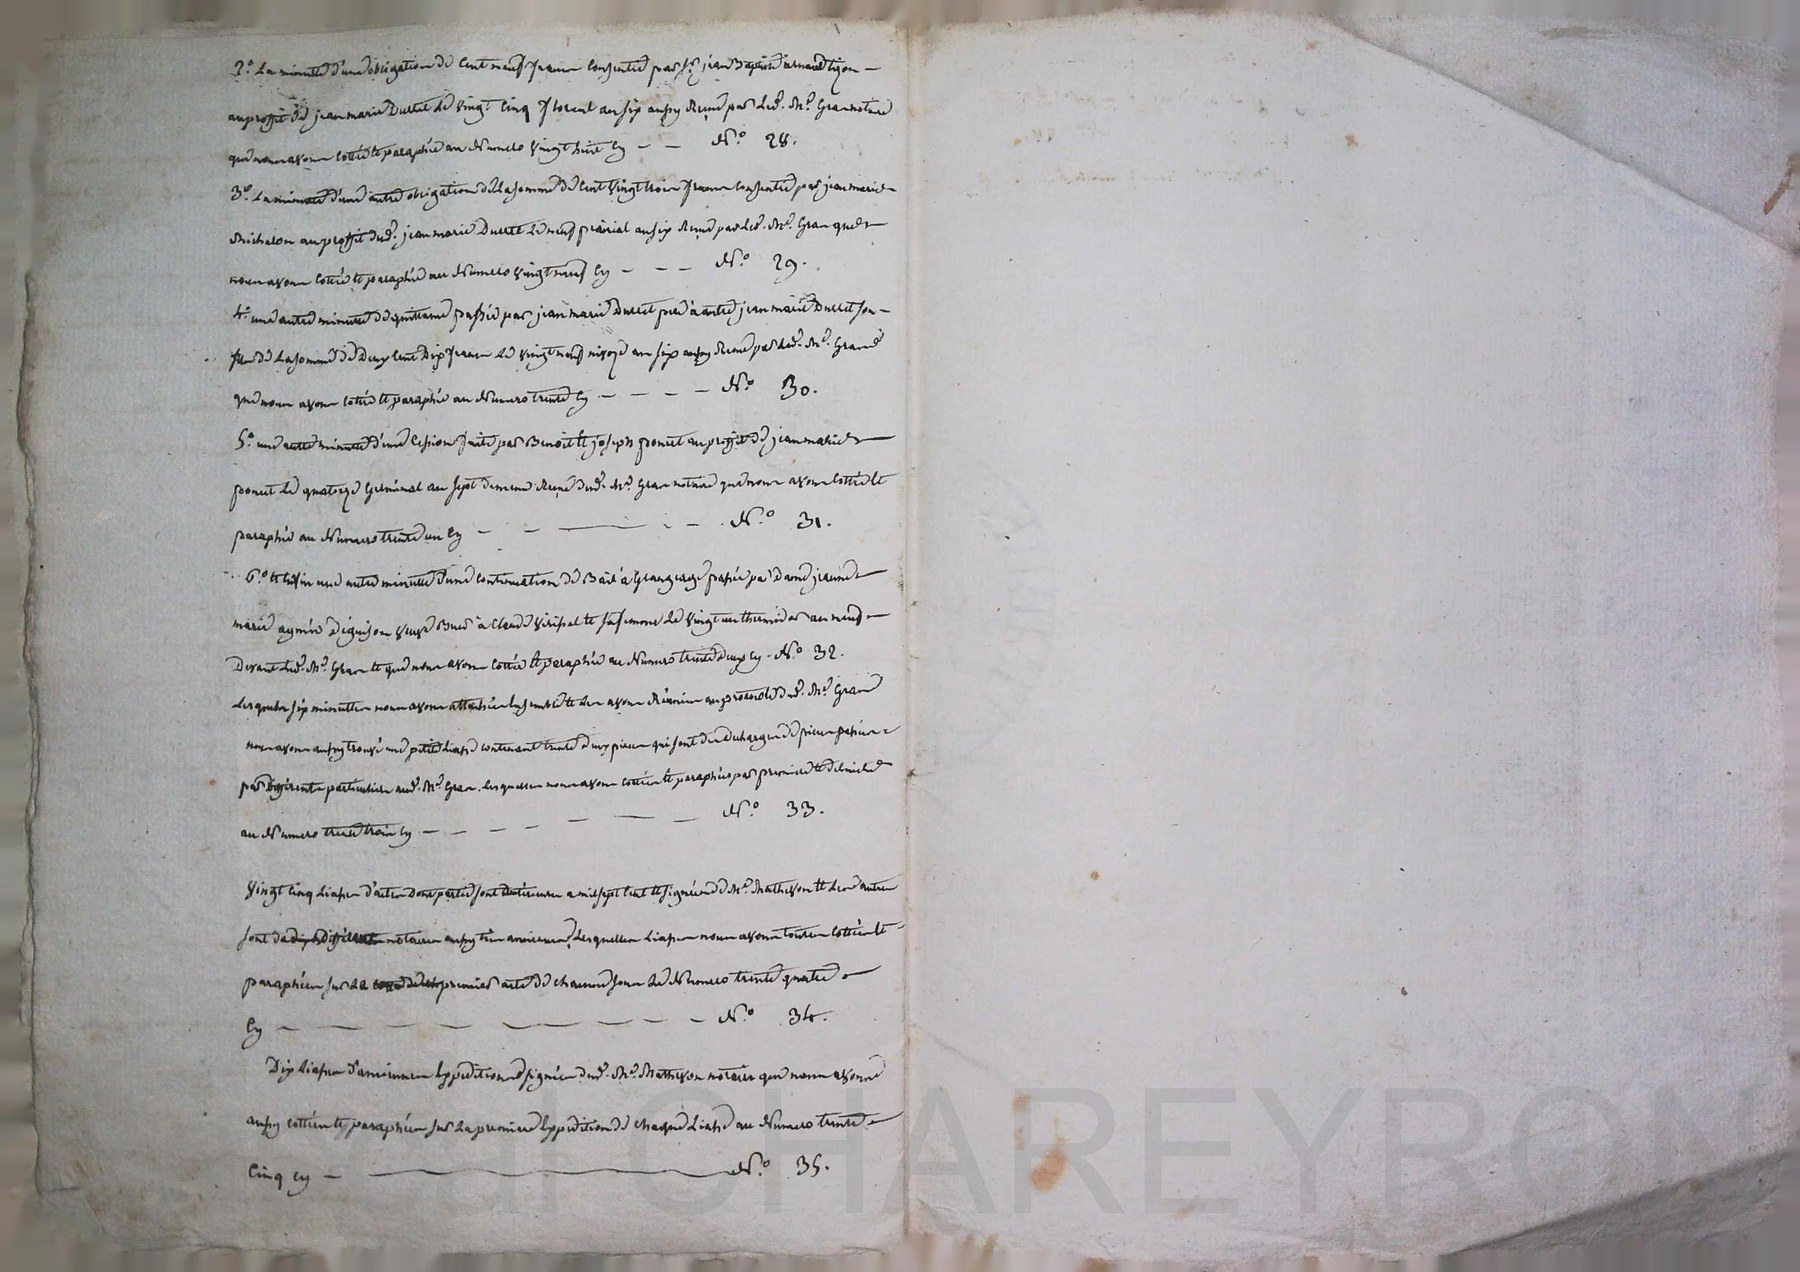 2.° La minutte d'une obligation de Cent neuf francs Consentie par Sr. jean Baptiste
au proffit de jean marie Durret Le Vingt Cinq floreal an six aussy Reçue par Led. Me. Gras notaire
que nous avons Cottée et paraphée au Numero Vingt huit Cy — — N.° 28.
3.° La minutte d'une autre obligation de La somme de Cent Vingt trois francs Consentie par jean marie
Michalon au proffit dud. jean marie Durret Le neuf prairial an six Reçue par Led. Me. Gras que
nous avons Cottée et paraphée au Numero Vingt neuf Cy — — — N.° 29.
4.° une autre minutte de quittance passée par jean marie Durret pere à autre jean marie Durret son
fils de La somme de Deux Cent Dix francs Le Vingt neuf nivose an six aussy Reçue par Led. Me. Gras
que nous avons Cottée et paraphée au Numero trente Cy — — — — N.° 30.
5.° une autre minutte d'une Cession faite par Benoit et joseph poncet au proffit de jean marie
poncet Le quatorze Germinal an sept de meme Reçue dud. Me. Gras notaire que nous avons Cottée et
paraphée au Numero trente un Cy — — — — N.° 31.
6.° et Enfin une autre minutte d'une Continuation de Bail à Grangeage passée par Dame jeanne
marie agnès veuve à Claude et Le Vingt un thermidor an neuf
Devant Led. Me. Gras et que nous avons Cottée et paraphée au Numero trente deux Cy - N.° 32.
Lesquelles six minuttes nous avons attachées Ensemble et Les avons Réunies au protocole dud. Me. Gras
nous avons aussy trouvé une petite Liasse contenant trente deux pieces qui sont des decharges de pieces passées
par differents particuliers aud. Me. Gras. Lesquelles nous avons Cottées et paraphées par premiere et derniere
au Numero trente trois Cy — — — — — — N.° 33.
Vingt Cinq Liasses d'actes Dont partie sont anterieures a mil sept Cent et signées de Me. Mathevon et Les autres
sont de notaires aussy très anciennes, Lesquelles Liasses nous avons toutes Cottées et
paraphées sur Le premier acte de chacune sous Le Numero trente quatre
Cy — — — — — — — — N.° 34.
Dix Liasses d'anciennes Expeditions signées dud. Me. Mathevon notaire que nous avons
aussy Cottées et paraphées sur La premiere Expedition de chaque Liasse au Numero trente
Cinq Cy — — N.° 35.
al CHAREYRON